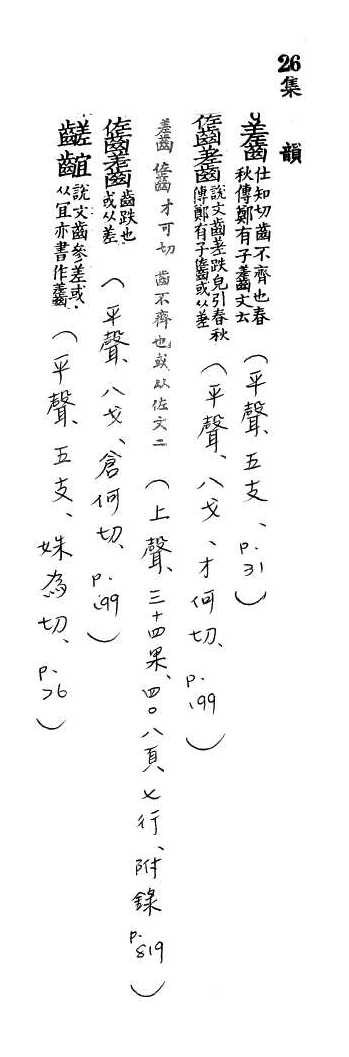 26 集韻
齹 仕知切齒不齊也春秋傳鄭有子齹文二(平聲、五支、p.31)
䶡齹 說文齒差跌皃引春秋傳鄭有子䶡或从差(平聲、八戈、才何切、p.199)
齹 䶡 才可切 齒不齊也或从佐文二(上聲、三十四果、四〇八頁、七行、附錄 p.819)
䶡齹 齒跌也或从差(平聲、八戈、倉何切、p.199)
齹齜 說文齒參差或从宜亦書作齹(平聲、五支、姝為切、p.26)